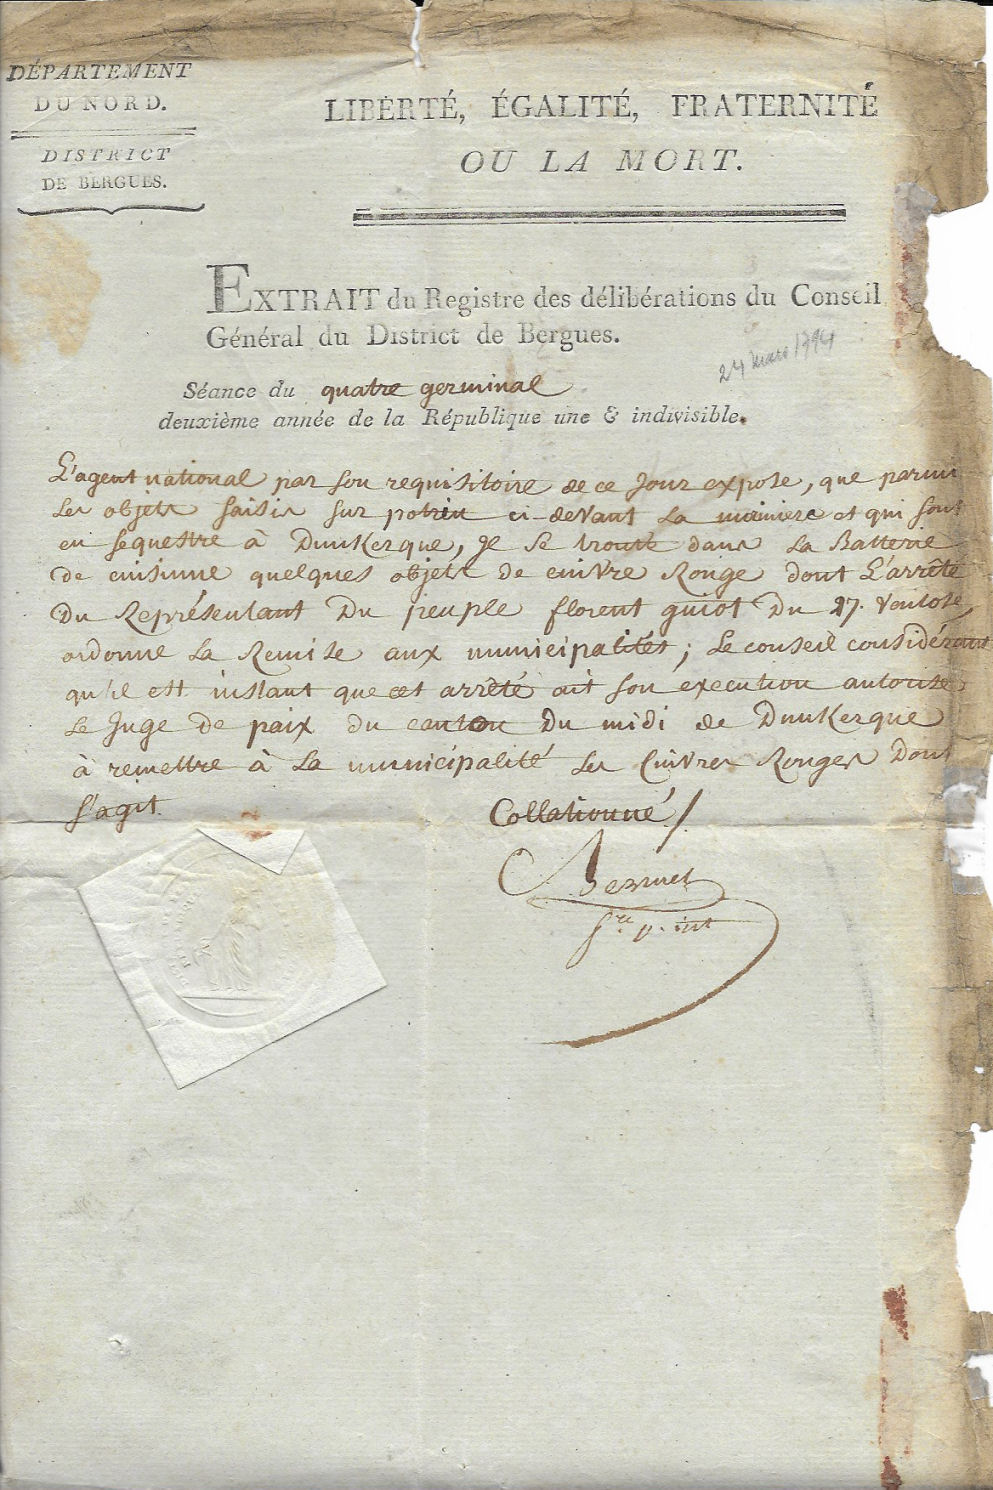 DÉPARTEMENT
DU NORD.
DISTRICT
DE BERGUES.
LIBERTÉ, ÉGALITÉ, FRATERNITÉ
OU LA MORT.
EXTRAIT du Registre des délibérations du Conseil
Général du District de Bergues.
24 mars 1794
Séance du quatre germinal
deuxième année de la République une & indivisible.
L'agent national par son requisitoire de ce Jour expose, que parmi
les objets saisis sur potrin ci-devant La moriniere et qui sont
en sequestre à Dunkerque, Je se trouve dans La Batterie
de cuisinne quelques objets de cuivre Rouge dont L'arrêté
Du Représentant Du peuple florent guiot Du 27. Ventose,
ordonne La Remise aux municipalités; Le conseil considérant
qu'il est instant que cet arrêté ait son execution autorise
Le Juge De paix du canton Du midi de Dunkerque
à remettre à La municipalité Les Cuivres Rouges Dont
s'agit.
Collationné /
S.re p. int